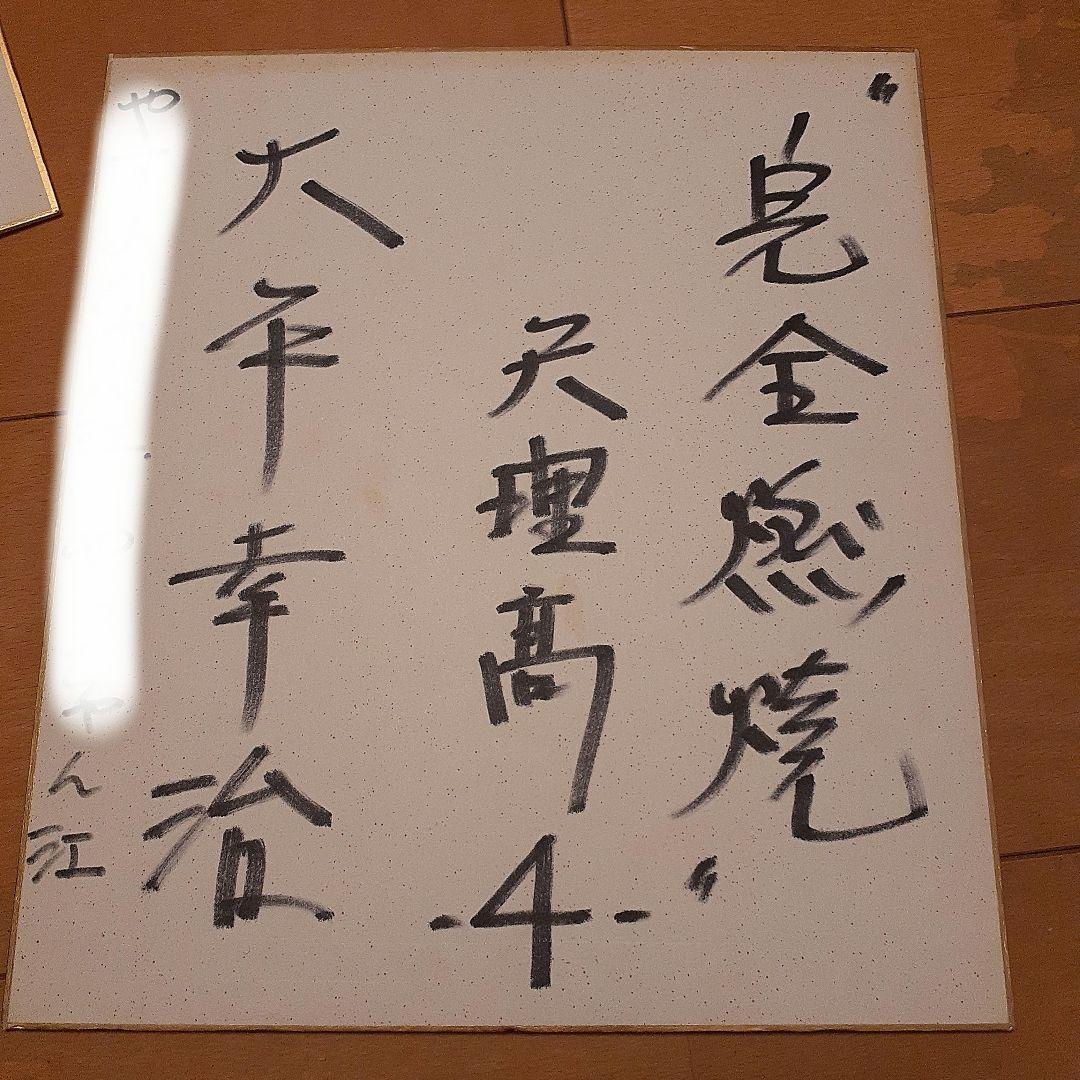 "完全燃焼"
天理高
-4-
大平幸治
や
やん江